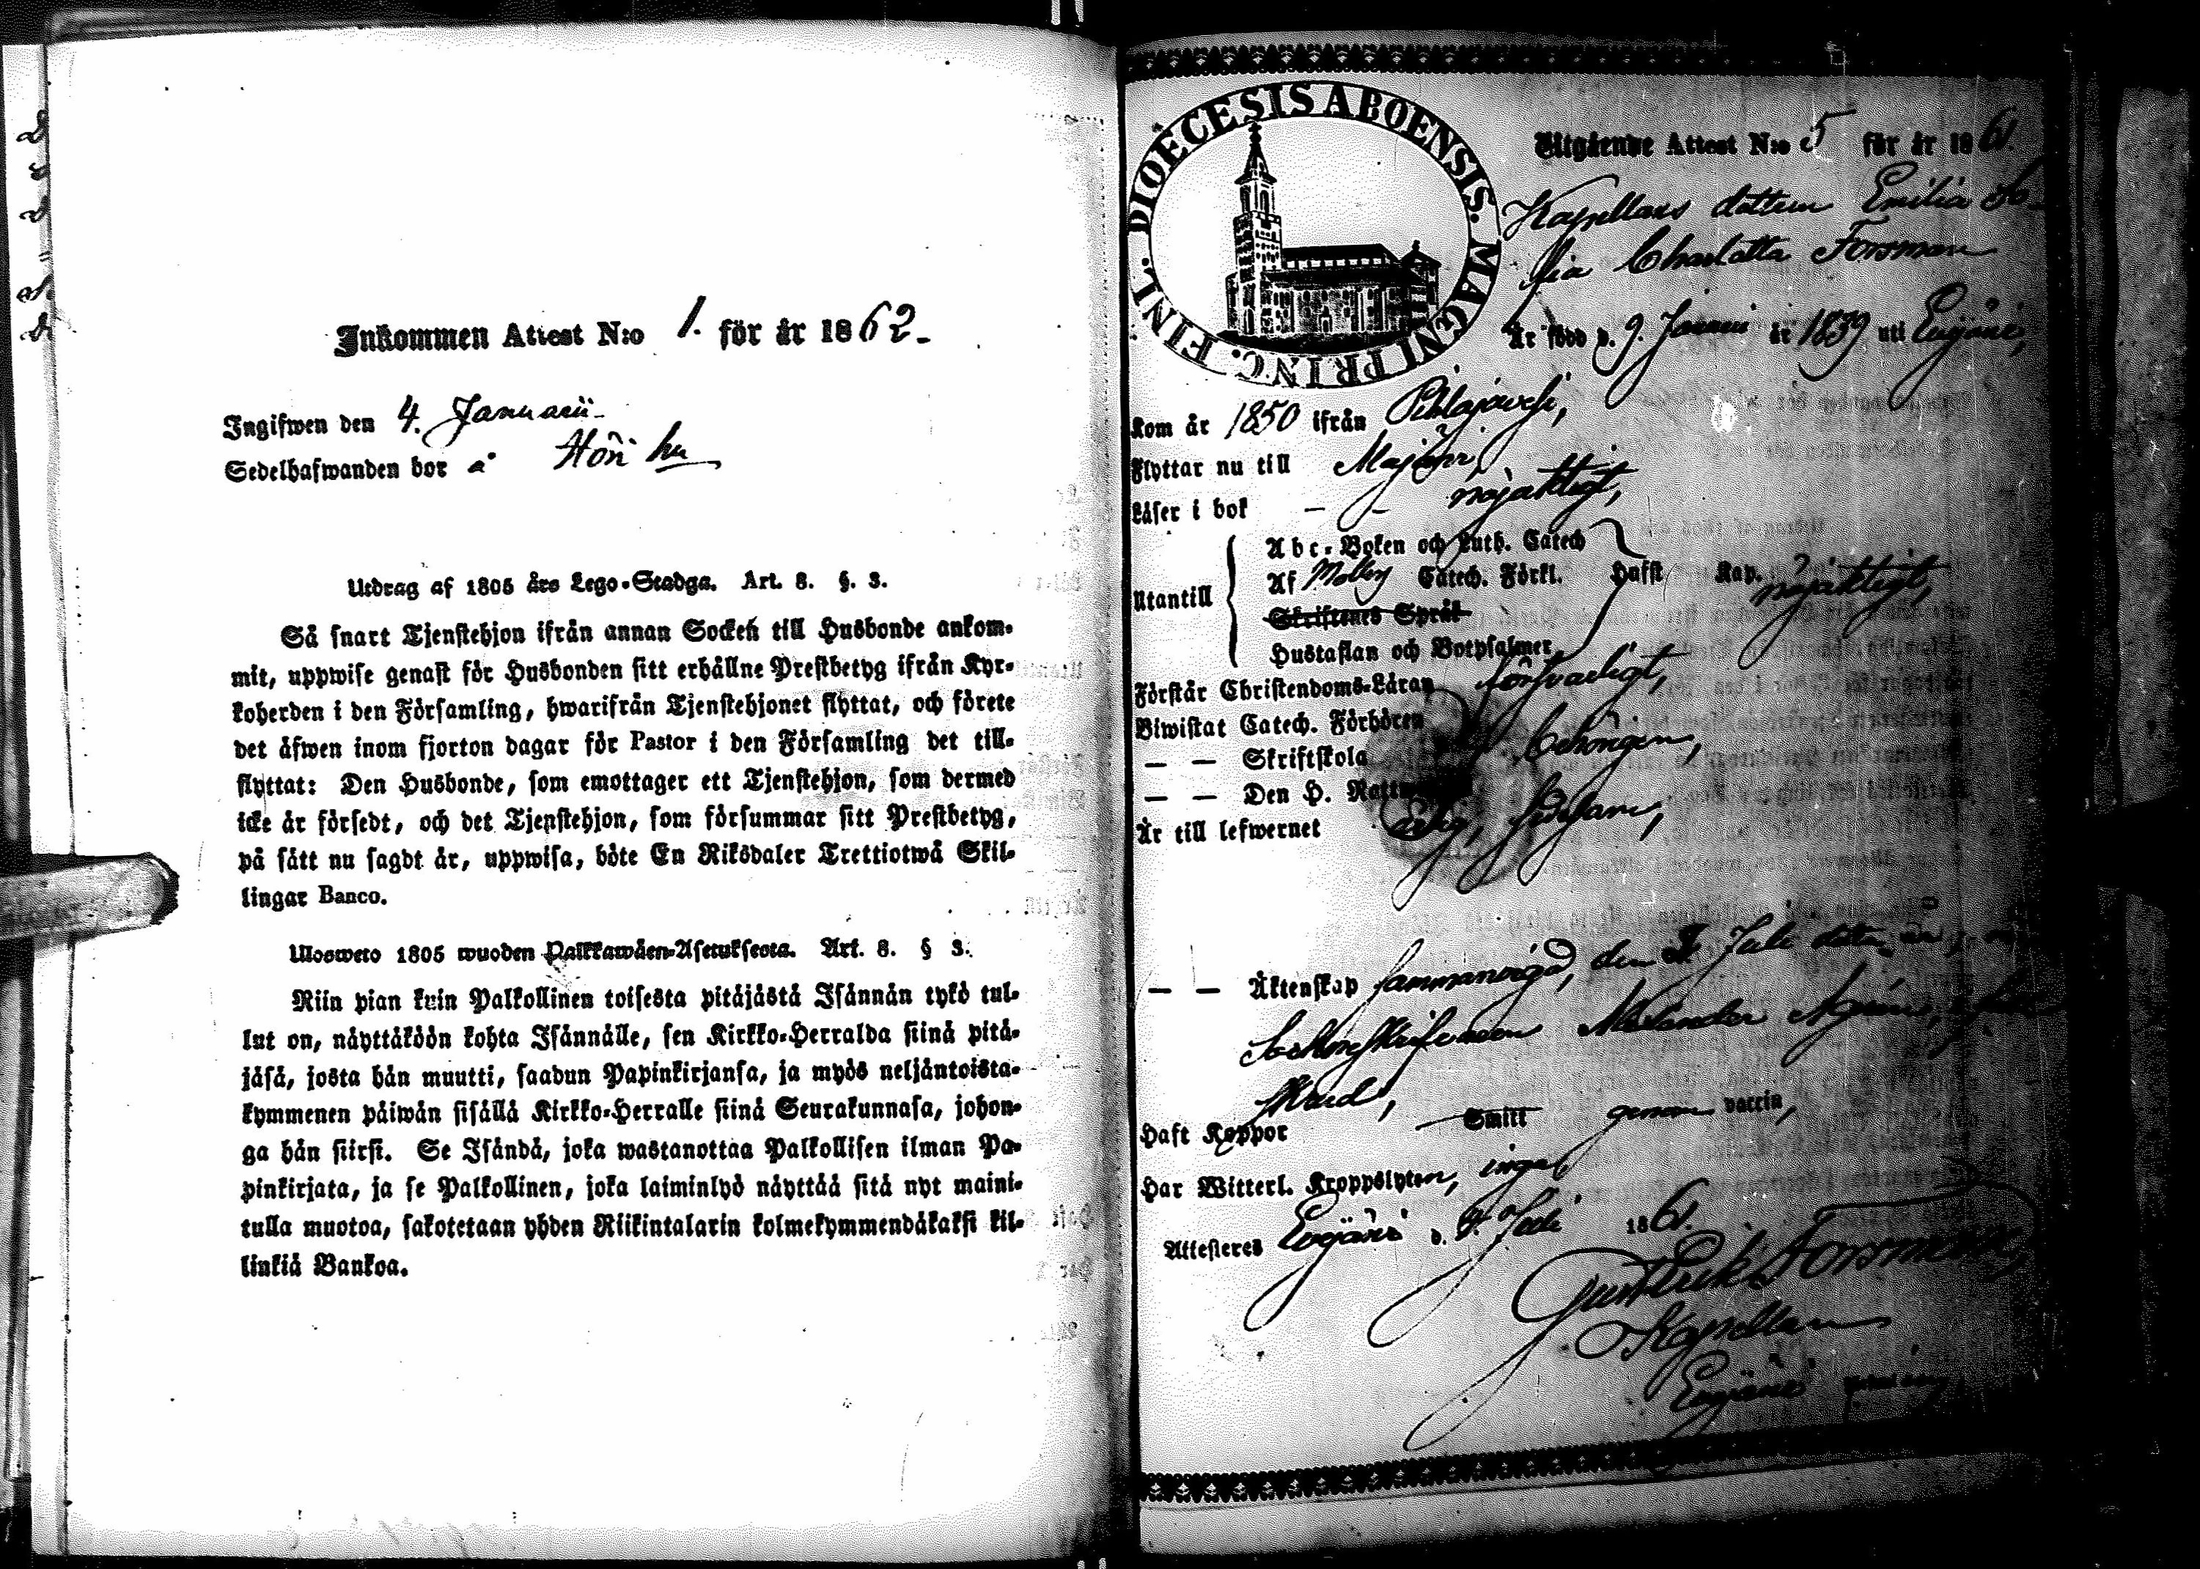 Inkommen Attest N:o 1. för år 1862.
Ingifwen den 4. Januarii
Sedelhafwanden bor å
Utdrag af 1805 års Lego-Stadga. Art. 8. §. 3.
Så snart Tjenstehjon ifrån annan Socken till Husbonde ankom-
mit, uppwise genast för Husbonden sitt erhållne Prestbetyg ifrån Kyr-
koherden i den Församling, hwarifrån Tjenstehjonet flyttat, och förete
det äfwen inom fjorton dagar för Pastor i den Församling det till-
flyttat: Den Husbonde, som emottager ett Tjenstehjon, som dermed
icke är försedt, och det Tjenstehjon, som försummar sitt Prestbetyg,
på sätt nu sagdt är, uppwisa, böte En Riksdaler Trettiotwå Skil-
lingar Banco.
Ulosweto 1805 wuoden Palkkawäen-Asetuksesta. Art. 8. § 3.
Niin pian kuin Palkollinen toisesta pitäjästä Isännän tykö tul-
lut on, näyttäköön kohta Isännälle, sen Kirkko-Herralda siinä pitä-
jäsä, josta hän muutti, saadun Papinkirjansa, ja myös neljäntoista-
kymmenen päiwän sisällä Kirkko-Herralle siinä Seurakunnasa, johon-
ga hän siirsi. Se Isändä, joka wastanottaa Palkollisen ilman Pa-
pinkirjata, ja se Palkollinen, joka laiminlyö näyttää sitä nyt maini-
tulla muotoa, sakotetaan yhden Riikintalarin kolmekymmendäkaksi kil-
linkiä Bankoa.
DIOECESIS ABOENSIS. MAGNI PRINC. FINL.
Utgående Attest N:o 5 för år 1861.
Kapellans dottern Emilia So-
fia Charlotta Forsman
Är född d. 9. Januarii år 1839 uti Ewijärvi,
Kom år 1850 ifrån Pihlajavesi,
Flyttar nu till
Läser i bok — — nöjaktigt,
Utantill
Abc-Boken och Luth. Catech
Af Catech. Förkl. Hafst Kap. nöjaktigt,
Skriftenes Språk
Hustaflan och Botpsalmer
Förstår Christendoms-Läran försvarligt,
Biwistat Catech. Förhören
— — Skriftskola behörigen,
— — Den H. Nattw
Är till lefwernet ärlig,
— — Äktenskap sammanvigd, den Juli detta år
Alexander
Haft Koppor Smitt genom vaccin,
Har Witterl. Kroppslyten, inga,
Attesteres Ewijärvi d. Juli 1861.
Gust Erik Forsman,
Kapellan
Ewijärvi